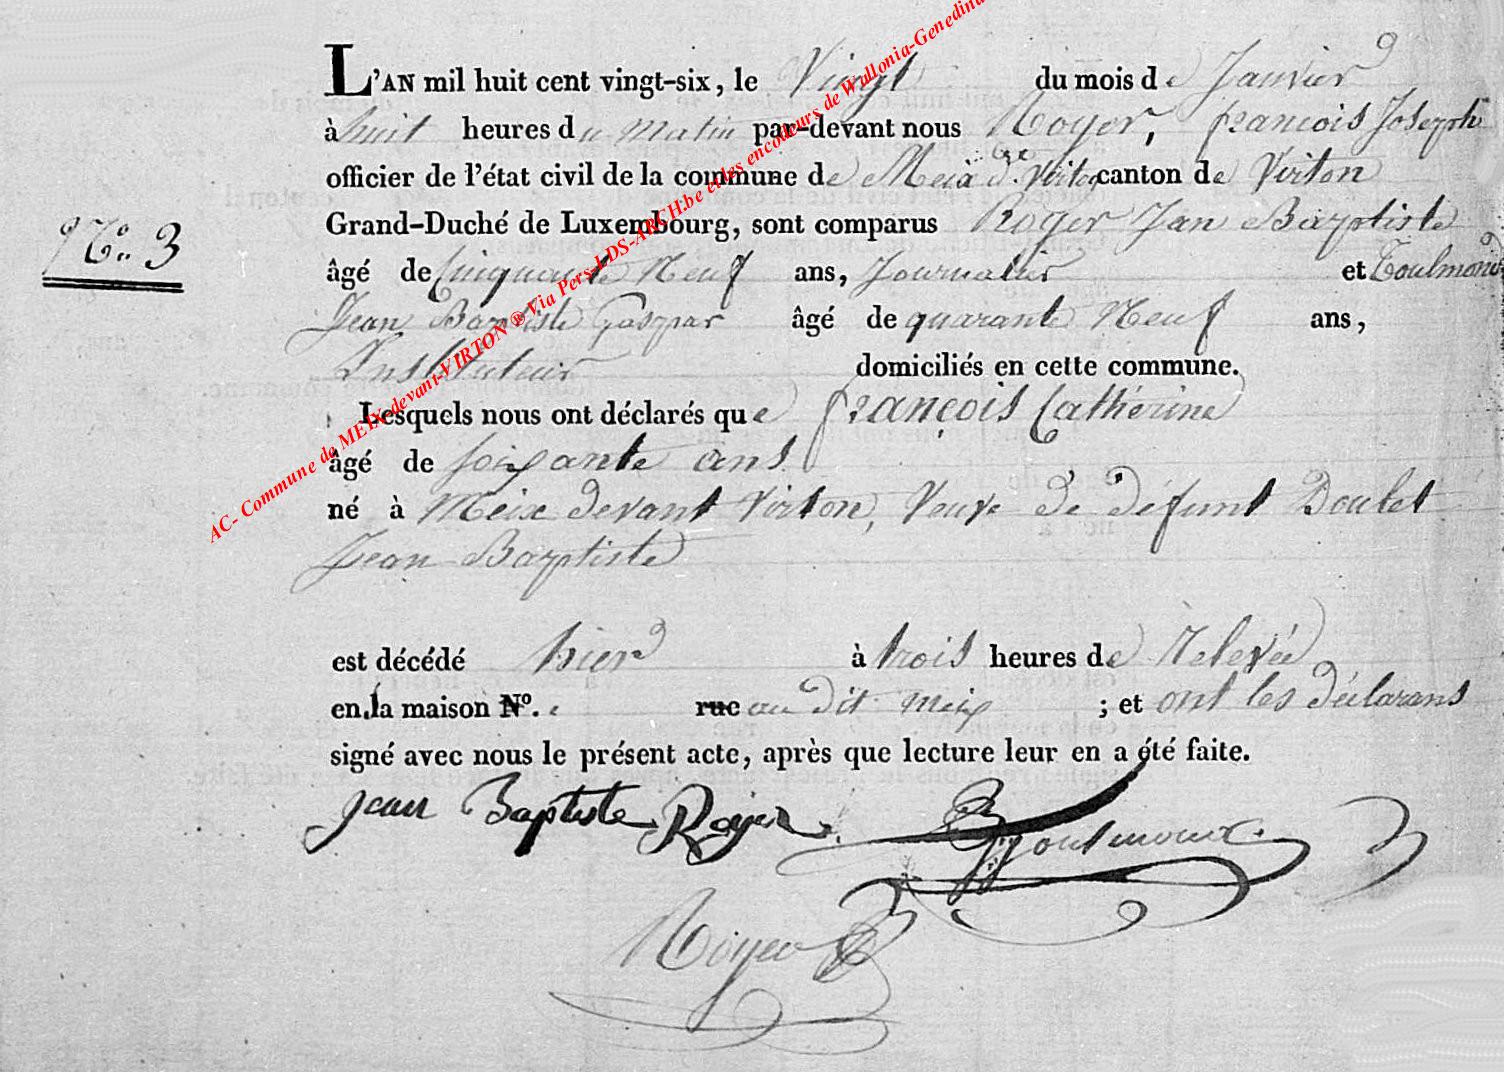 L'AN mil huit cent vingt-six, le Vingt du mois de Janvier
à huit heures du matin par-devant nous Royer, françois Joseph
officier de l'état civil de la commune de Meix dt Virton canton de Virton
Grand-Duché de Luxembourg, sont comparus Royer Jan Baptiste
N° 3
âgé de Cinquante Neuf ans, Journalier et Toulmond
Jean Baptiste Gaspar âgé de quarante Neuf ans,
Instituteur domiciliés en cette commune.
Lesquels nous ont déclarés que françois Catherine
âgé de soixante ans
né à Meix devant Virton, Veuve de défunt Doulet
Jean Baptiste
est décédé hier à trois heures de Relevée
en la maison N°. rue au dit meix ; et ont les déclarans
signé avec nous le présent acte, après que lecture leur en a été faite.
Jean Baptiste Royer
Royer
AC- Commune de MEIX-devant-VIRTON ® Via Pers-LDS-ARCH.be et les encodeurs de Wallonia-Genedina